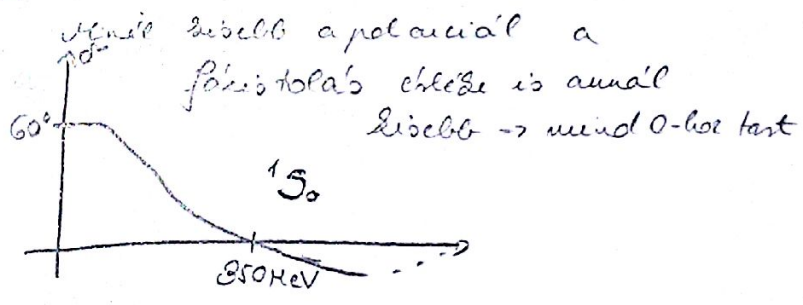 Minél kisebb a potenciál a
δ
fázistolás értéke is annál
60° kisebb → mind 0-hoz tart
¹S₀
350 MeV